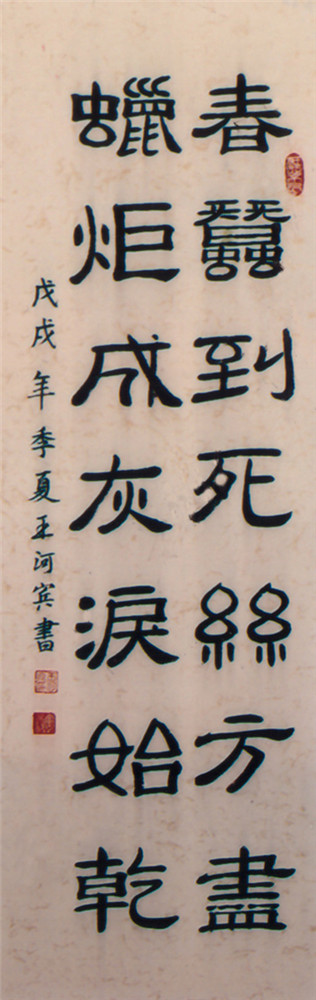 春蠶到死絲方盡
蠟炬成灰淚始乾
戊戌年季夏王河宾書